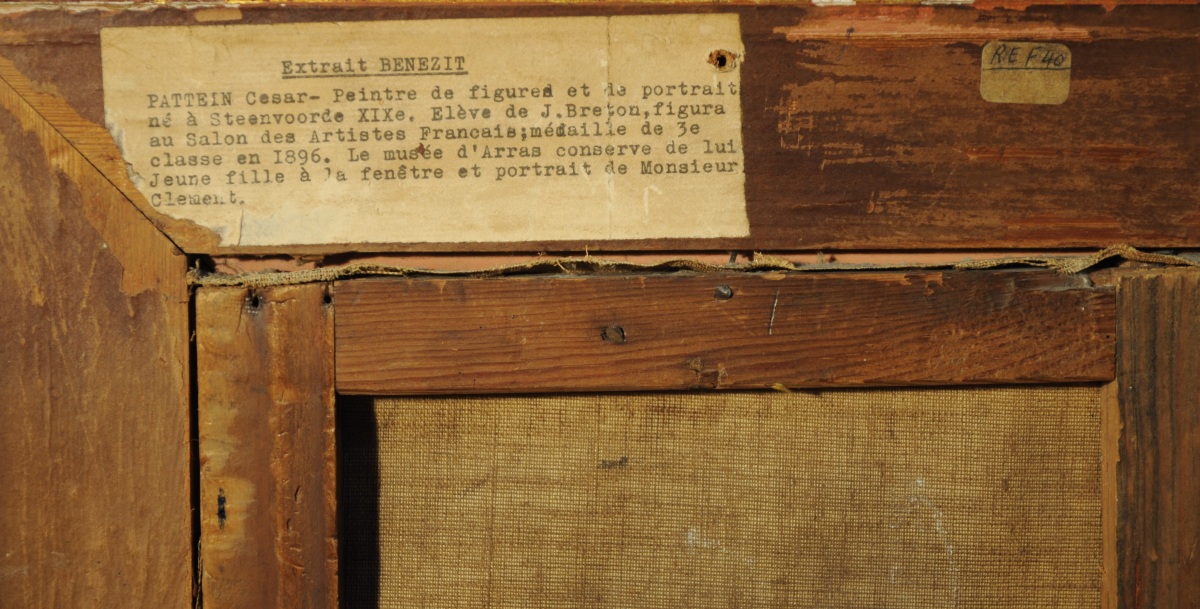 Extrait BENEZIT
PATTEIN Cesar- Peintre de figures et de portrait
né à Steenvoorde XIXe. Elève de J.Breton,figura
au Salon des Artistes Francais;médaille de 3e
classe en 1896. Le musée d'Arras conserve de lui
Jeune fille à la fenêtre et portrait de Monsieur
Clement.
REF 40